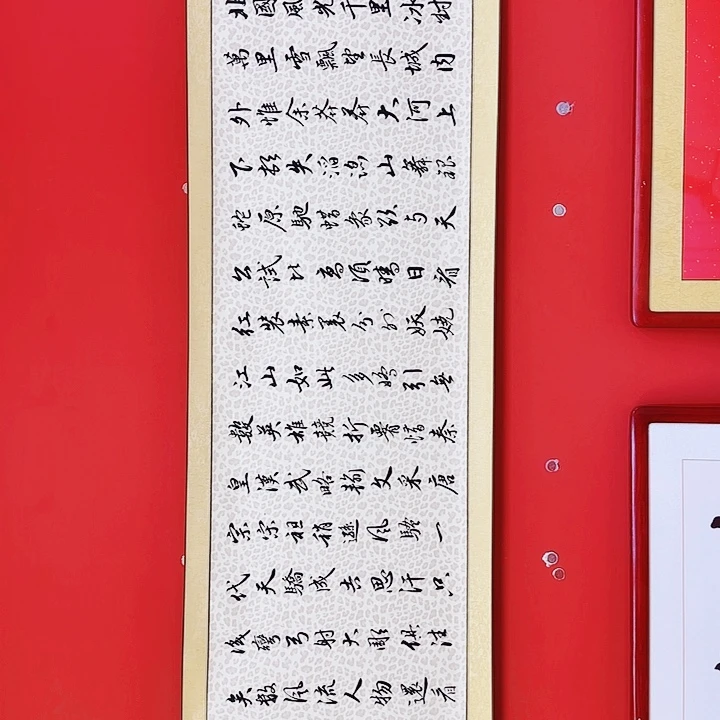 北國風光千里冰封
萬里雪飄望長城内
外惟余莽莽大河上
下頓失滔滔山舞銀
蛇原馳蠟象欲与天
公試比高須晴日看
紅裝素裹分外妖嬈
江山如此多嬌引無
數英雄競折腰惜秦
皇漢武略輸文采唐
宗宋祖稍遜風騷一
代天驕成吉思汗只
識彎弓射大雕俱往
矣數風流人物還看